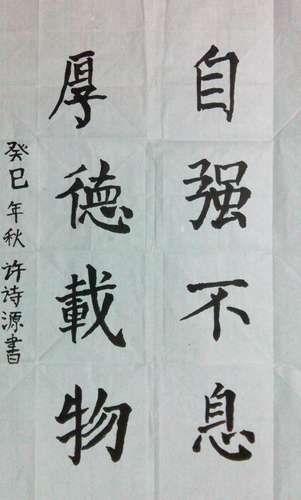 自强不息
厚德載物
癸巳年秋 许诗源書